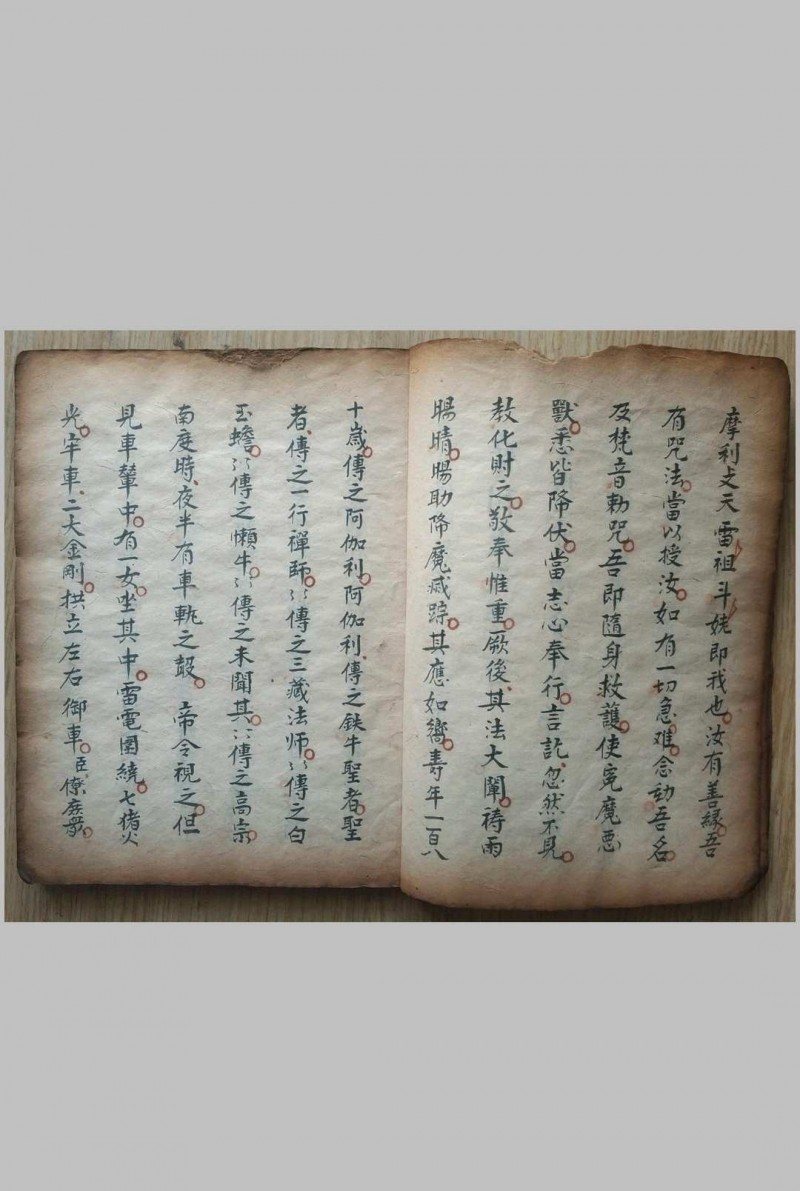 摩利支天雷祖斗姥即我也汝有善緣吾
有咒法當以授汝如有一切急难念動吾名
及梵音勅咒吾即隨身救護使寃魔悪
獸悉皆降伏當志心奉行言訖忽然不見
教化財之敬奉惟重厥後其法大闡禱雨
暘晴暘助降魔滅踪其應如嚮壽年一百八
十歲傳之阿伽利阿伽利傳之鉄牛聖者聖
者傳之一行禪師〻傳之三藏法师〻傳之白
玉蟾〻傳之懶牛〻傳之未聞其〻傳之高宗
南庭時夜半有車軌之聲帝令視之但
見車輦中有一女坐其中雷電圍繞七猪火
光牢車二大金剛拱立左右御車臣僚庶